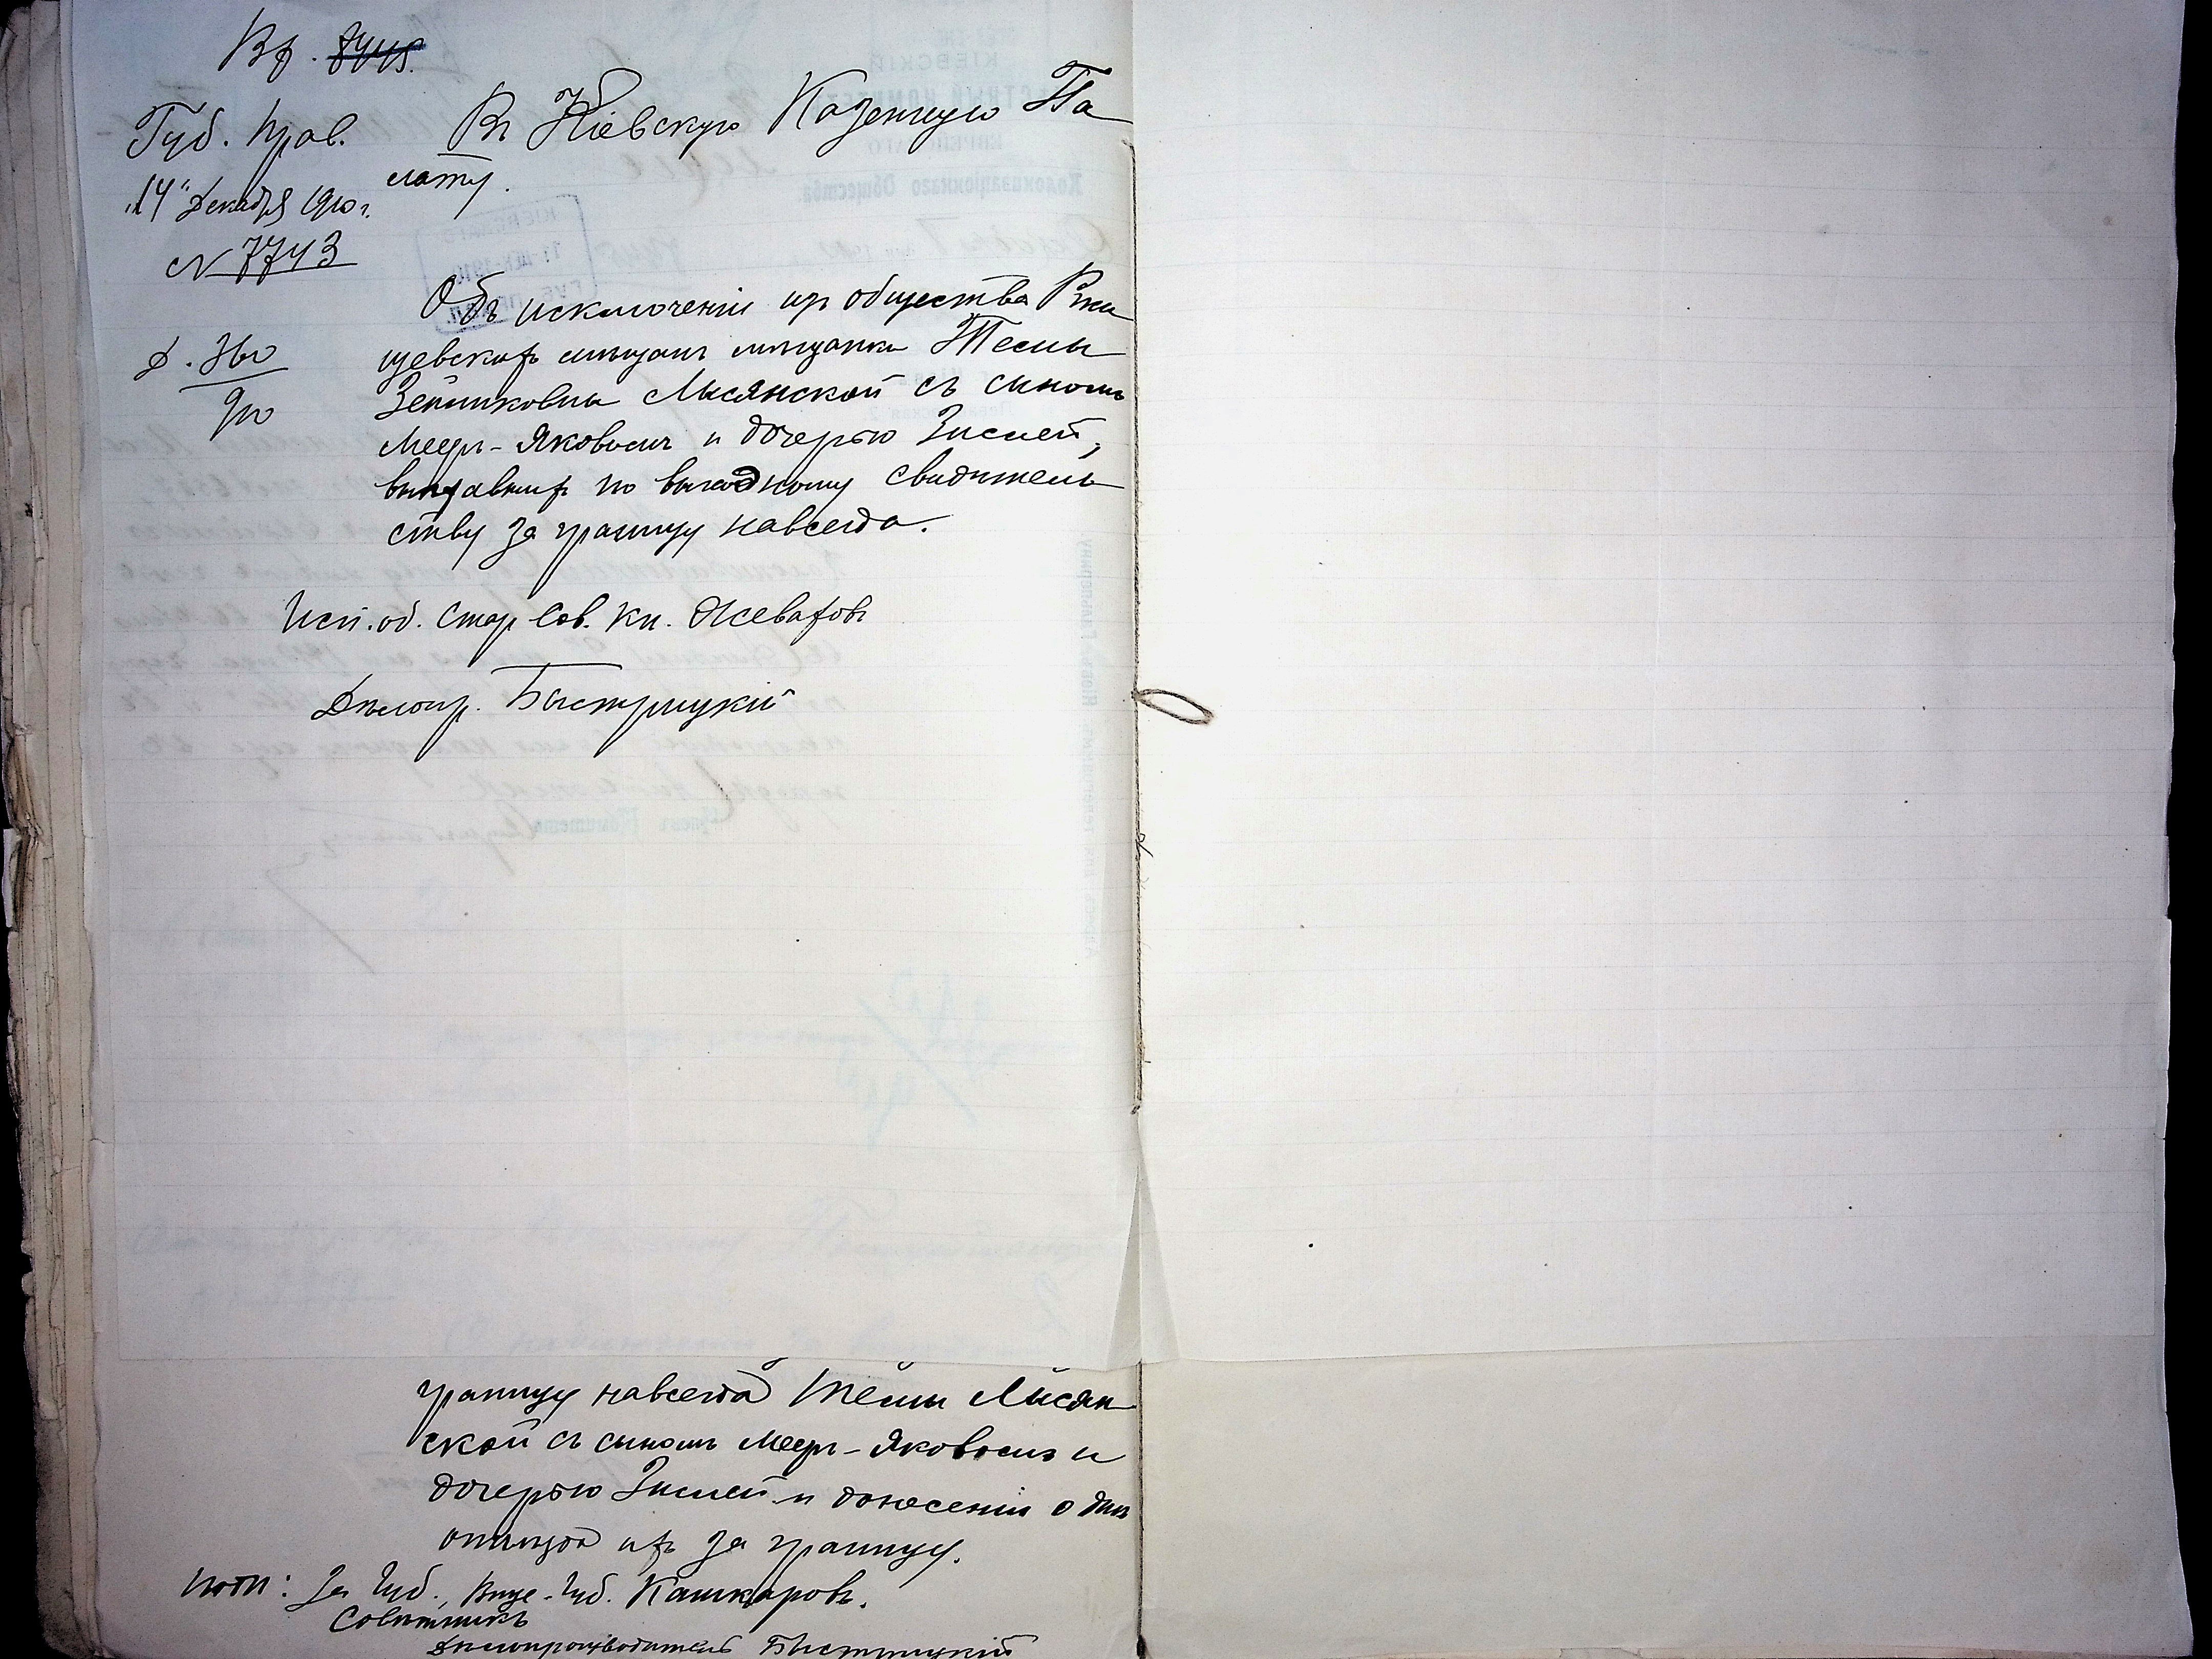 Губ. Прав.
"14" Декабря 1910 г.
№ 7743
Д. 360
910
Въ Кіевскую Казенную Па
лату.
Объ исключеніи изъ общества Ржи
щевскихъ мѣщанъ мѣщанки Темы
Лисянской съ сыномъ
Меер-Яковомъ и дочерью Зислей,
выѣхавшихъ по выходному свидѣтель
ству за границу навсегда.
Исп. об. Стар. Сов. Кн. Жеваховъ
Дѣлопр. Быстрицкій
границу навсегда Темы Лисян
ской съ сыномъ Меер-Яковомъ и
дочерью Зислей и донесеніи о днѣ
отъѣзда ихъ за границу.
подп: За Губ., Вице-Губ. Кашкаровъ.
Совѣтникъ
Дѣлопроизводитель Быстрицкій